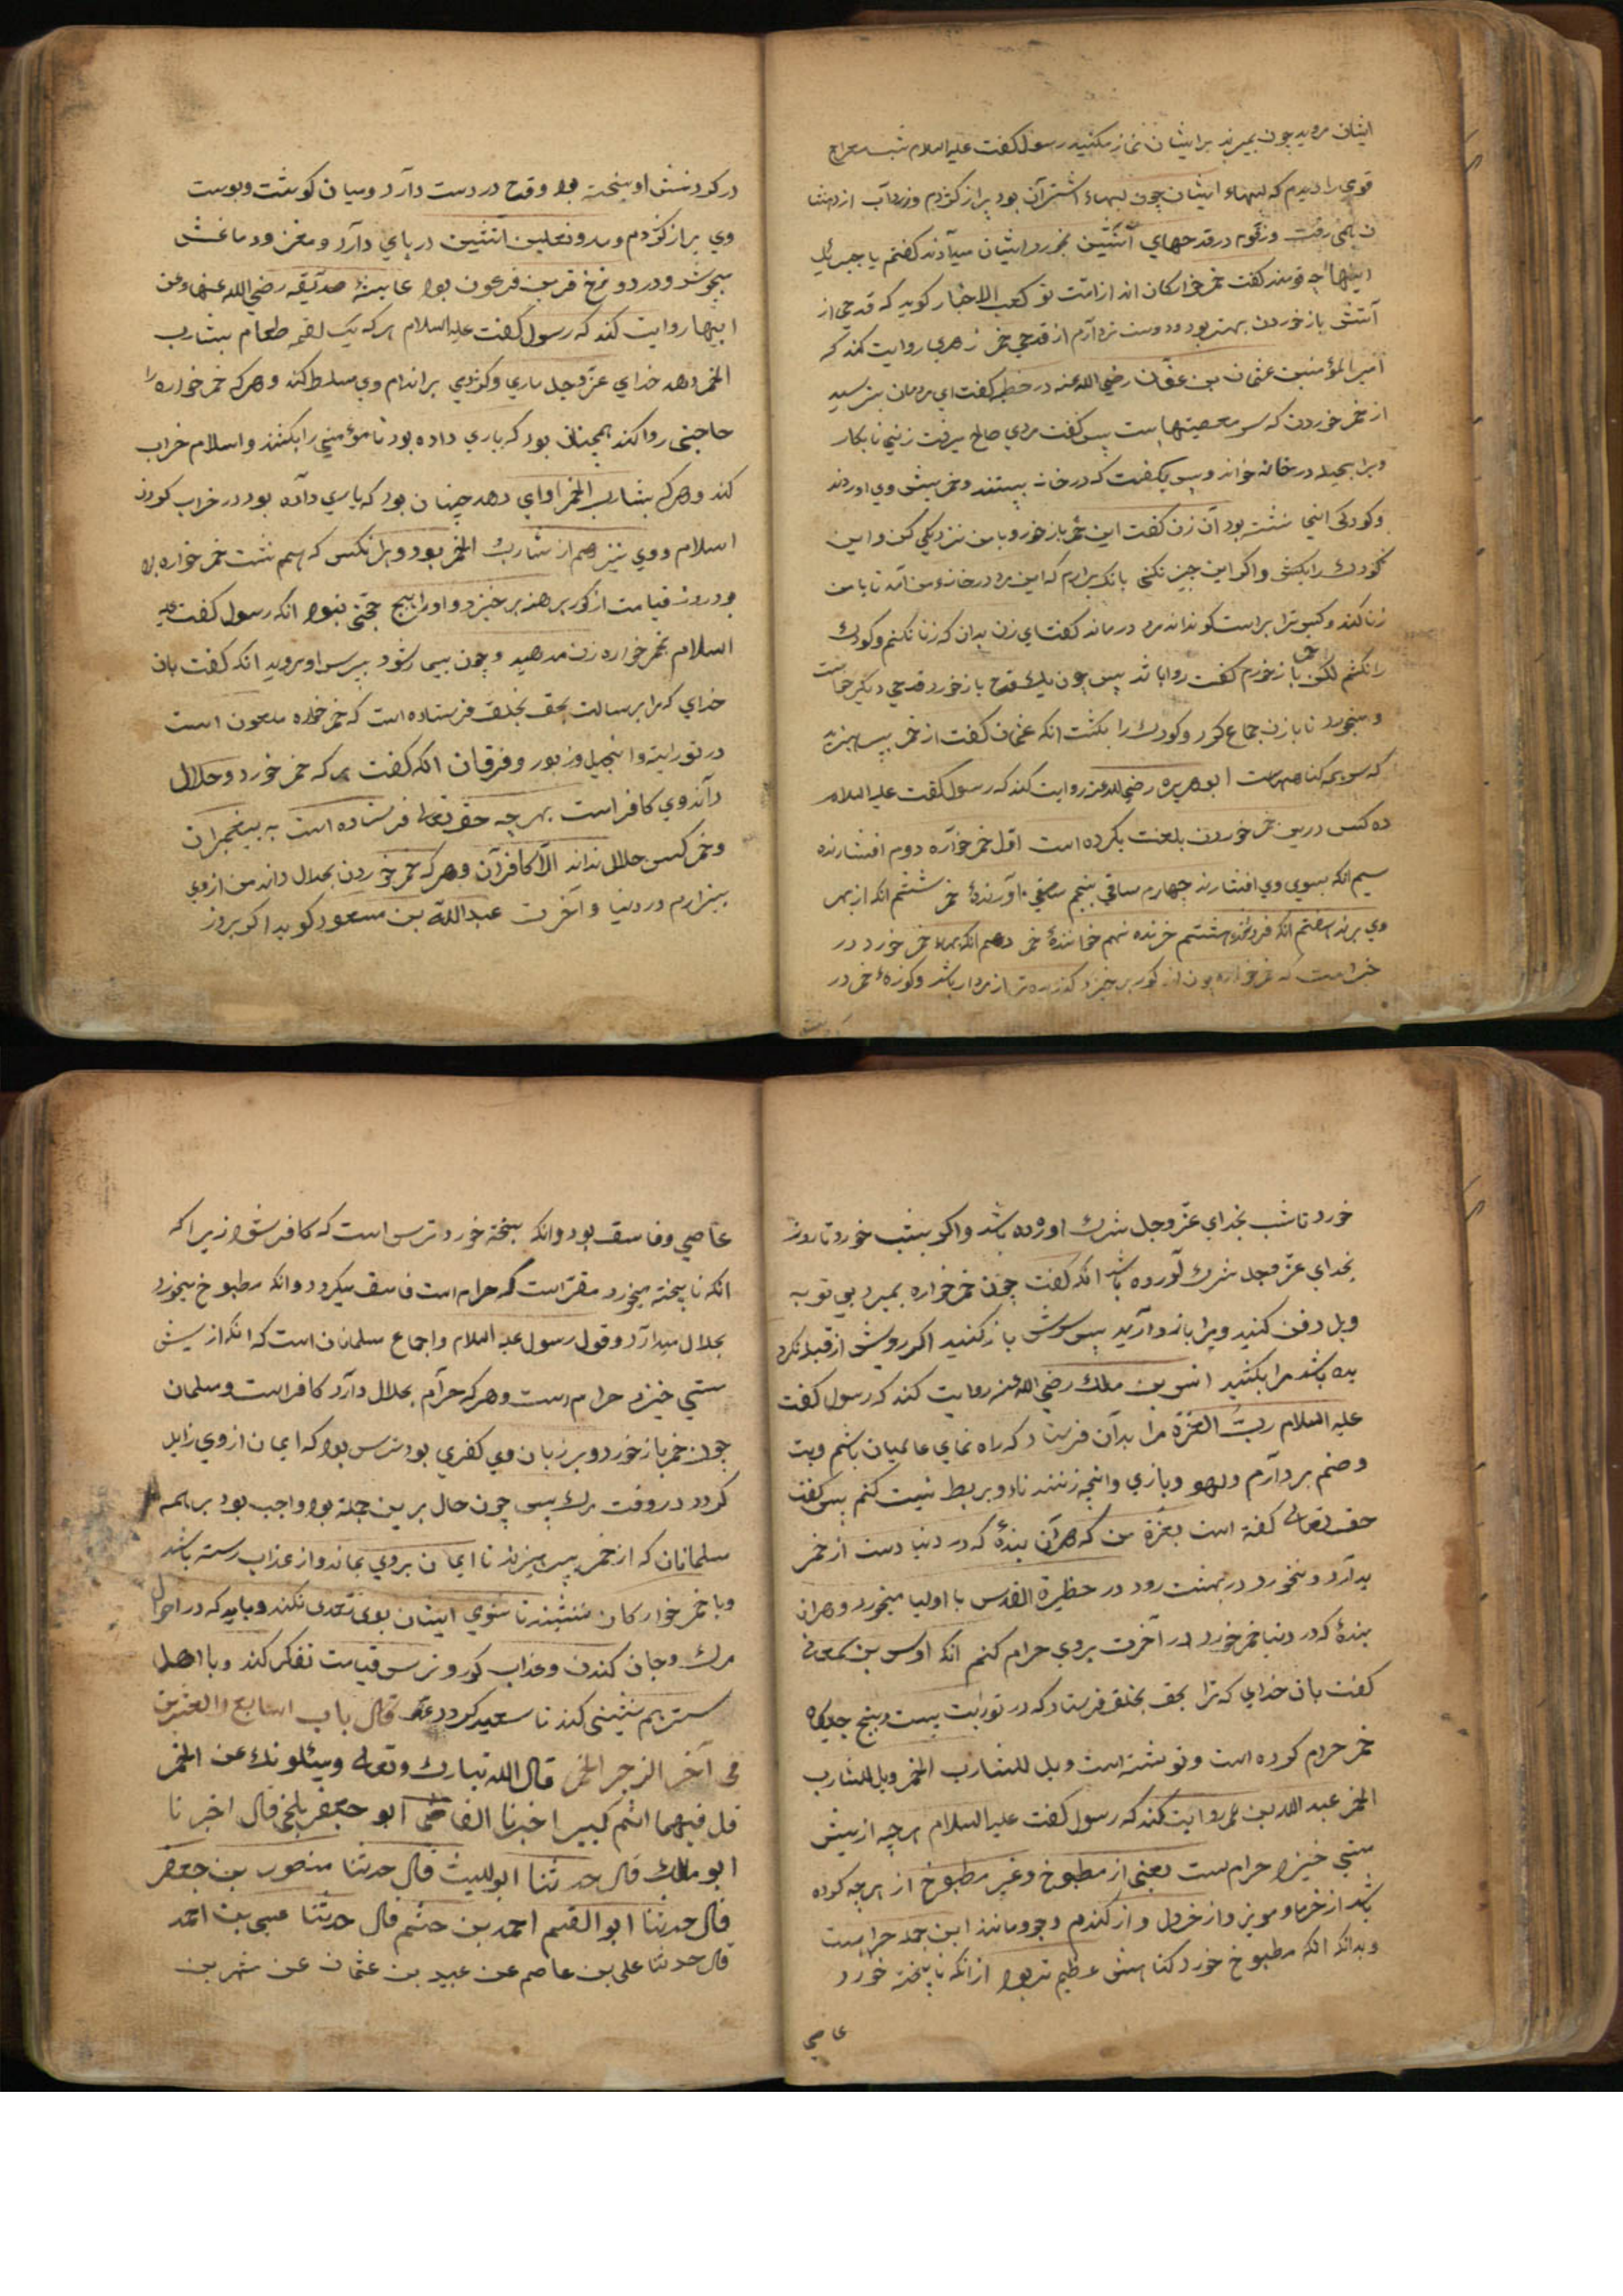 ایشان مروید چون بمیرند برایشان نماز مکنید رسول گفت علیه السلام شب معراج
قومی را دیدم که لبهاء ایشان چون لبهاء اشتران بود پر از کژدم و زرداب از دهنشا
ن همی رفت و زقوم در قدحهای آتشین بخورد ایشان میدادند گفتم یا جبرئیل
اینها چه قومند گفت خمر خوارگان اند از امت تو کعب الاخبار گوید که قدحی از
آتش باز خوردن بهتر بود و دوست تر دارم از قدحی خمر زهری روایت کند که
امیر المؤمنین عثمان بن عفان رضی الله عنه در خطبه گفت ای مردمان بترسید
از خمر خوردن که سر معصیتهاست پس گفت مردی صالح میرفت زنی نابکار
ویرا بحیله در خانه خواند و پس بگفت که در خانه ببستند و خمر پیش وی اوردند
و کودکی اینجا نشسته بود آن زن گفت این خمر باز خور و با من نزدیکی کن و این
کودک را بکش و اگر این چیز نکنی بانگ برارم که این مرد در خانه من آمد تا با من
زنا کند و کیس ترا براست گو نداند مرد درماند گفت ای زن بدان که زنا نکنم و کودک
را نکشم لکن باز خورم گفت روا باشد پس چون یک قدح باز خورد قدحی دیگر خواست
و بخورد تا با زن جماع کرد و کودک را بکشت انکه عثمان گفت از خمر بپرهیزید
که سر همه گناههاست ابو هریره رضی الله عنه روایت کند که رسول گفت علیه السلام
ده کس درین خمر خوردن بلعنت بکرده است اول خمر خواره دوم افشارنده
سیم انکه بسوی وی افشارند چهارم ساقی پنجم آورندهٔ خمر ششم انکه از بهر
وی برند هفتم انکه فروشد هشتم خرنده نهم خواننده خمر دهم انکه بهاء خمر خورد در
خبر است که خمر خواره چون از کور برخیزد کنده تر از مردار باشد و کوزهٔ خمر در
در گردنش اویخته بود و قدح در دست دارد و میان گوشت و پوست
وی پر از کژدم و مار و نعلین آتشین در پای دارد و مغز و دماغش
میجوشد و در دوزخ قرین فرعون بود عایشهٔ صدیقه رضی الله عنها وعن
ابیها روایت کند که رسول گفت علیه السلام هر که یک لقمه طعام بشارب
الخمر دهد خدای عز و جل ماری و کژدمی بر اندام وی مسلط کند و هر که خمر خواره را
حاجتی روا کند همچنان بود که یاری داده بود تا مؤمنی را بکشند و اسلام خراب
کند و هر که بشارب الخمر اوای دهد چنان بود که یاری داده بود در خراب کردن
اسلام و وی نیز هم از شارب الخمر بود و هر انکس که هم نشست خمر خواره بود
و در روز قیامت از کور برهنه برخیزد و اورا هیچ حجتی نبود انکه رسول گفت علیه
السلام بخمر خواره زن مدهید و چون بیمار شود بپرس او مروید انکه گفت بان
خدای که مرا برسالت بحق بخلق فرستاده است که خمر خواره ملعون است
در توراية و انجیل و زبور و فرقان انکه گفت هر که خمر خورد و حلال
داند وی کافر است بهر چه حق تعالی فرستاده است به پیغمبران
و خمر کس حلال نداند الا کافران و هر که خمر خوردن بحلال داند من از وی
بیزارم در دنیا و آخرت عبدالله بن مسعود گوید اگر بروز
خورد تا شب بخدای عز و جل شرک اورده باشد و اگر بشب خورد تا روز
بخدای عز و جل شرک آورده باشد انکه گفت چون خمر خواره بمیرد بی توبه
ویل دفن کنید ویرا باز دارید پس سرش باز کنید اگر رویش از قبله نکرد
یده باشد مرا بکشید انس بن ملک رضی الله عنه روایت کند که رسول گفت
علیه السلام رب العزة مرا بدان فرستاد که راه نمای عالمیان باشم و بت
و صنم بردارم و لهو و بازی و اینچه زنند نای و بربط نیست کنم پس گفت
حق تعالی گفته است بعزة من که هران بندهٔ که در دنیا دست از خمر
بدارد و نخورد در بهشت رود در حظیرة القدس با اولیا میخورد و هران
بندهٔ که در دنیا خمر خورد در آخرت بروی حرام کنم انکه اوس بن سمعانی
گفت بان خدای که ترا بحق بخلق فرستاد که در توراية بیست و پنج جایگاه
خمر حرام کرده است و نوشته است ویل للشارب الخمر ویل للشارب
الخمر عبد الله بن عمر روایت کند که رسول گفت علیه السلام هر چه از بیش
مستی خیزد حرام ست یعنی از مطبوخ و غیر مطبوخ از هر چه کرده
باشد از خرما و مویز و از خردل و از گندم و جو و مانند این جمله حرامست
و بدانکه انکه مطبوخ خورد کناهش عظیم تر بود از انکه نا پخته خورد
عاصی
عاصی و فاسق بود و انکه پخته خورد ترس است که کافر شود زیرا که
انکه نا پخته میخورد مقر است که حرام است فاسق میکردد و انکه مطبوخ میخورد
بحلال میدارد و قول رسول علیه السلام و اجماع مسلمانان است که انکه از بیش
مستی خیزد حرام است و هر که حرام بحلال دارد کافر است و مسلمان
چون خمر باز خورد و بر زبان وی کفری بود ترس بود که ایمان از وی زایل
گردد در وقت مرک پس چون حال برین جمله بود واجب بود بر همه
مسلمانان که از خمر بپرهیزند تا ایمان بروی بماند و از عذاب رسته باشد
و با خمر خوارکان ننشیند تا شومی ایشان بوی تعدی نکند و باید که در احوال
مرک و جان کندن و عذاب کور و ترس قیامت تفکر کند و با اهل
ستر هم نشینی کند تا سعید کردد قال باب السابع والعشرین
فی آخر الزجر الخمر قال الله تبارک وتعالی ویسئلونک عن الخمر
قل فیهما اثم کبیر اخبرنا القاضی ابو جعفر بلخی قال اخبرنا
ابو مالک قال حدثنا ابو اللیث قال حدثنا منصور بن جعفر
قال حدثنا ابو القسم احمد بن حشم قال حدثنا عیسی بن احمد
قال حدثنا علی بن عاصم عن عبید بن عثمان عن شهر بن